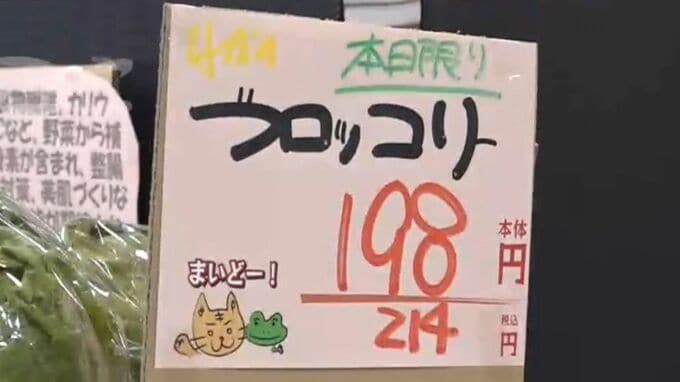 カリウ
など、野菜から補
素が含まれ、整腸
美肌づくりな
本日限り
ブロッコリー
198
本体
円
まいどー!
214
税込
円